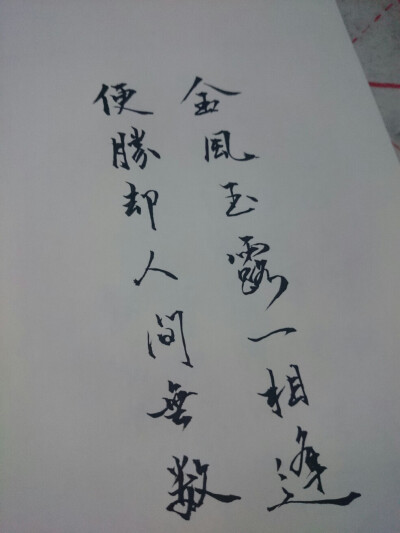 金風玉露一相逢
便勝却人间無数